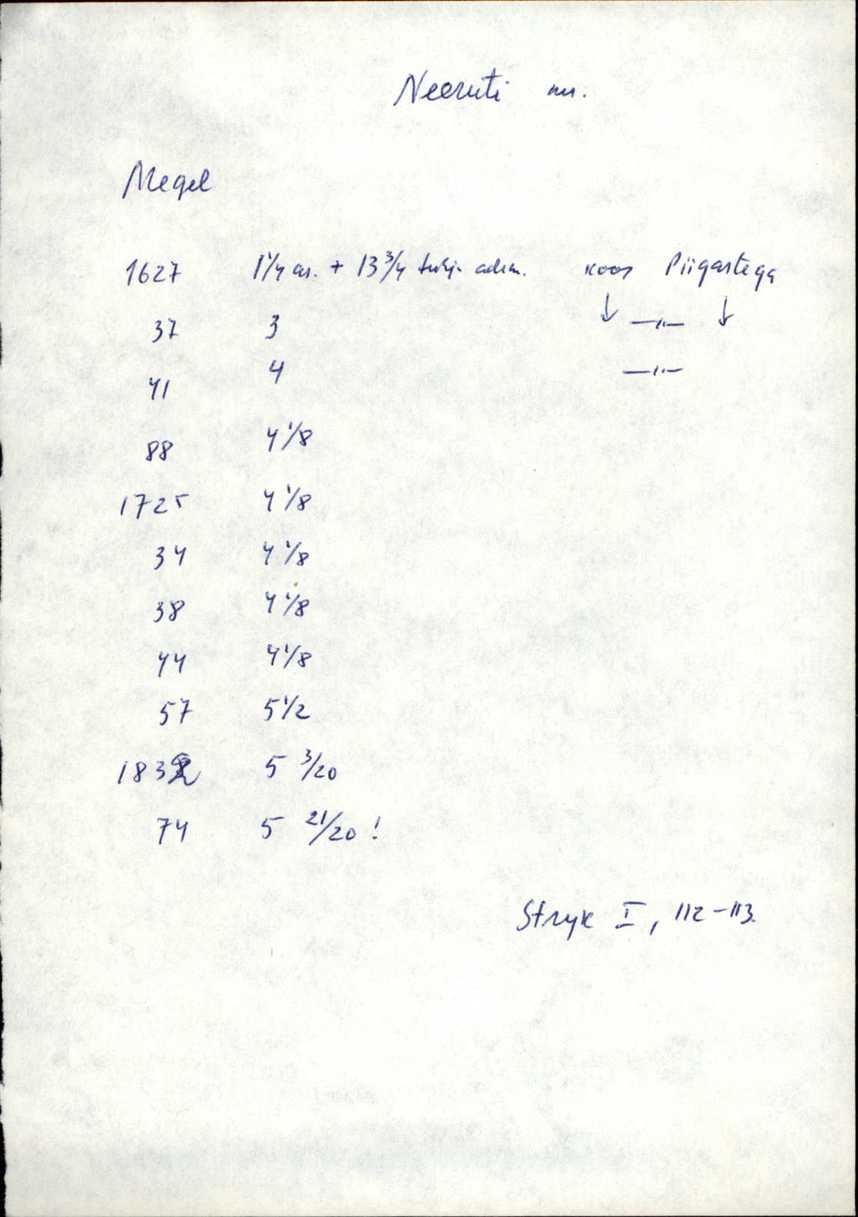 Neeruti m.
Megel
1627 1 1/4 as. + 13 3/4 tühja adm. koos Piigastega
37 3 ↓ —"— ↓
41 4 —"—
88 4 1/8
1725 4 1/8
34 4 1/8
38 4 1/8
44 4 1/8
57 5 1/2
1832 5 3/20
74 5 21/20 !
Stryk I, 112-113.